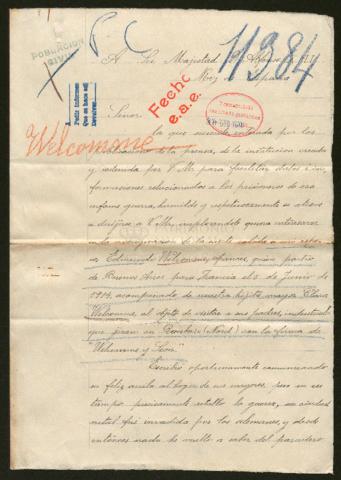 POBLACION
CIVIL
11984
A Su Majestad
Rey
Pedir informes
Que se hace así
Devolver
Fecho
e.a.e.
Señor:
Welcomme
la que suscribe enterada por las
de la prensa, de la institucion creada
y sostenida por V. M. para facilitar datos é in-
formaciones relacionados a los prisioneros de esa
infame guerra, humilde y respetuosamente se atreve
a dirijirse a V. M. implorandole quiera interesarse
en la
Edmundo Welcomme, frances, quien partio
de Buenos Aires para Francia el 5 de Junio de
1914, acompañado de nuestra hijita mayor Clara
Welcomme, al objeto de visitar a sus padres, industriales
que giran en (Nord) con la firma de
"Welcomme y Leon".
Escribio oportunamente comunicando
su feliz arribo al hogar de sus mayores, pero en ese
tiempo precisamente estalló la guerra, su ciudad
natal fué invadida por los alemanes, y desde
entonces nada he vuelto a saber del paradero